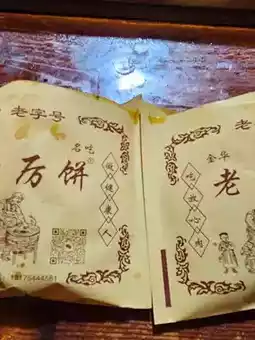 老字号
名吃
厉饼®
做健康人
18175444581
老
金华
老
吃放心肉